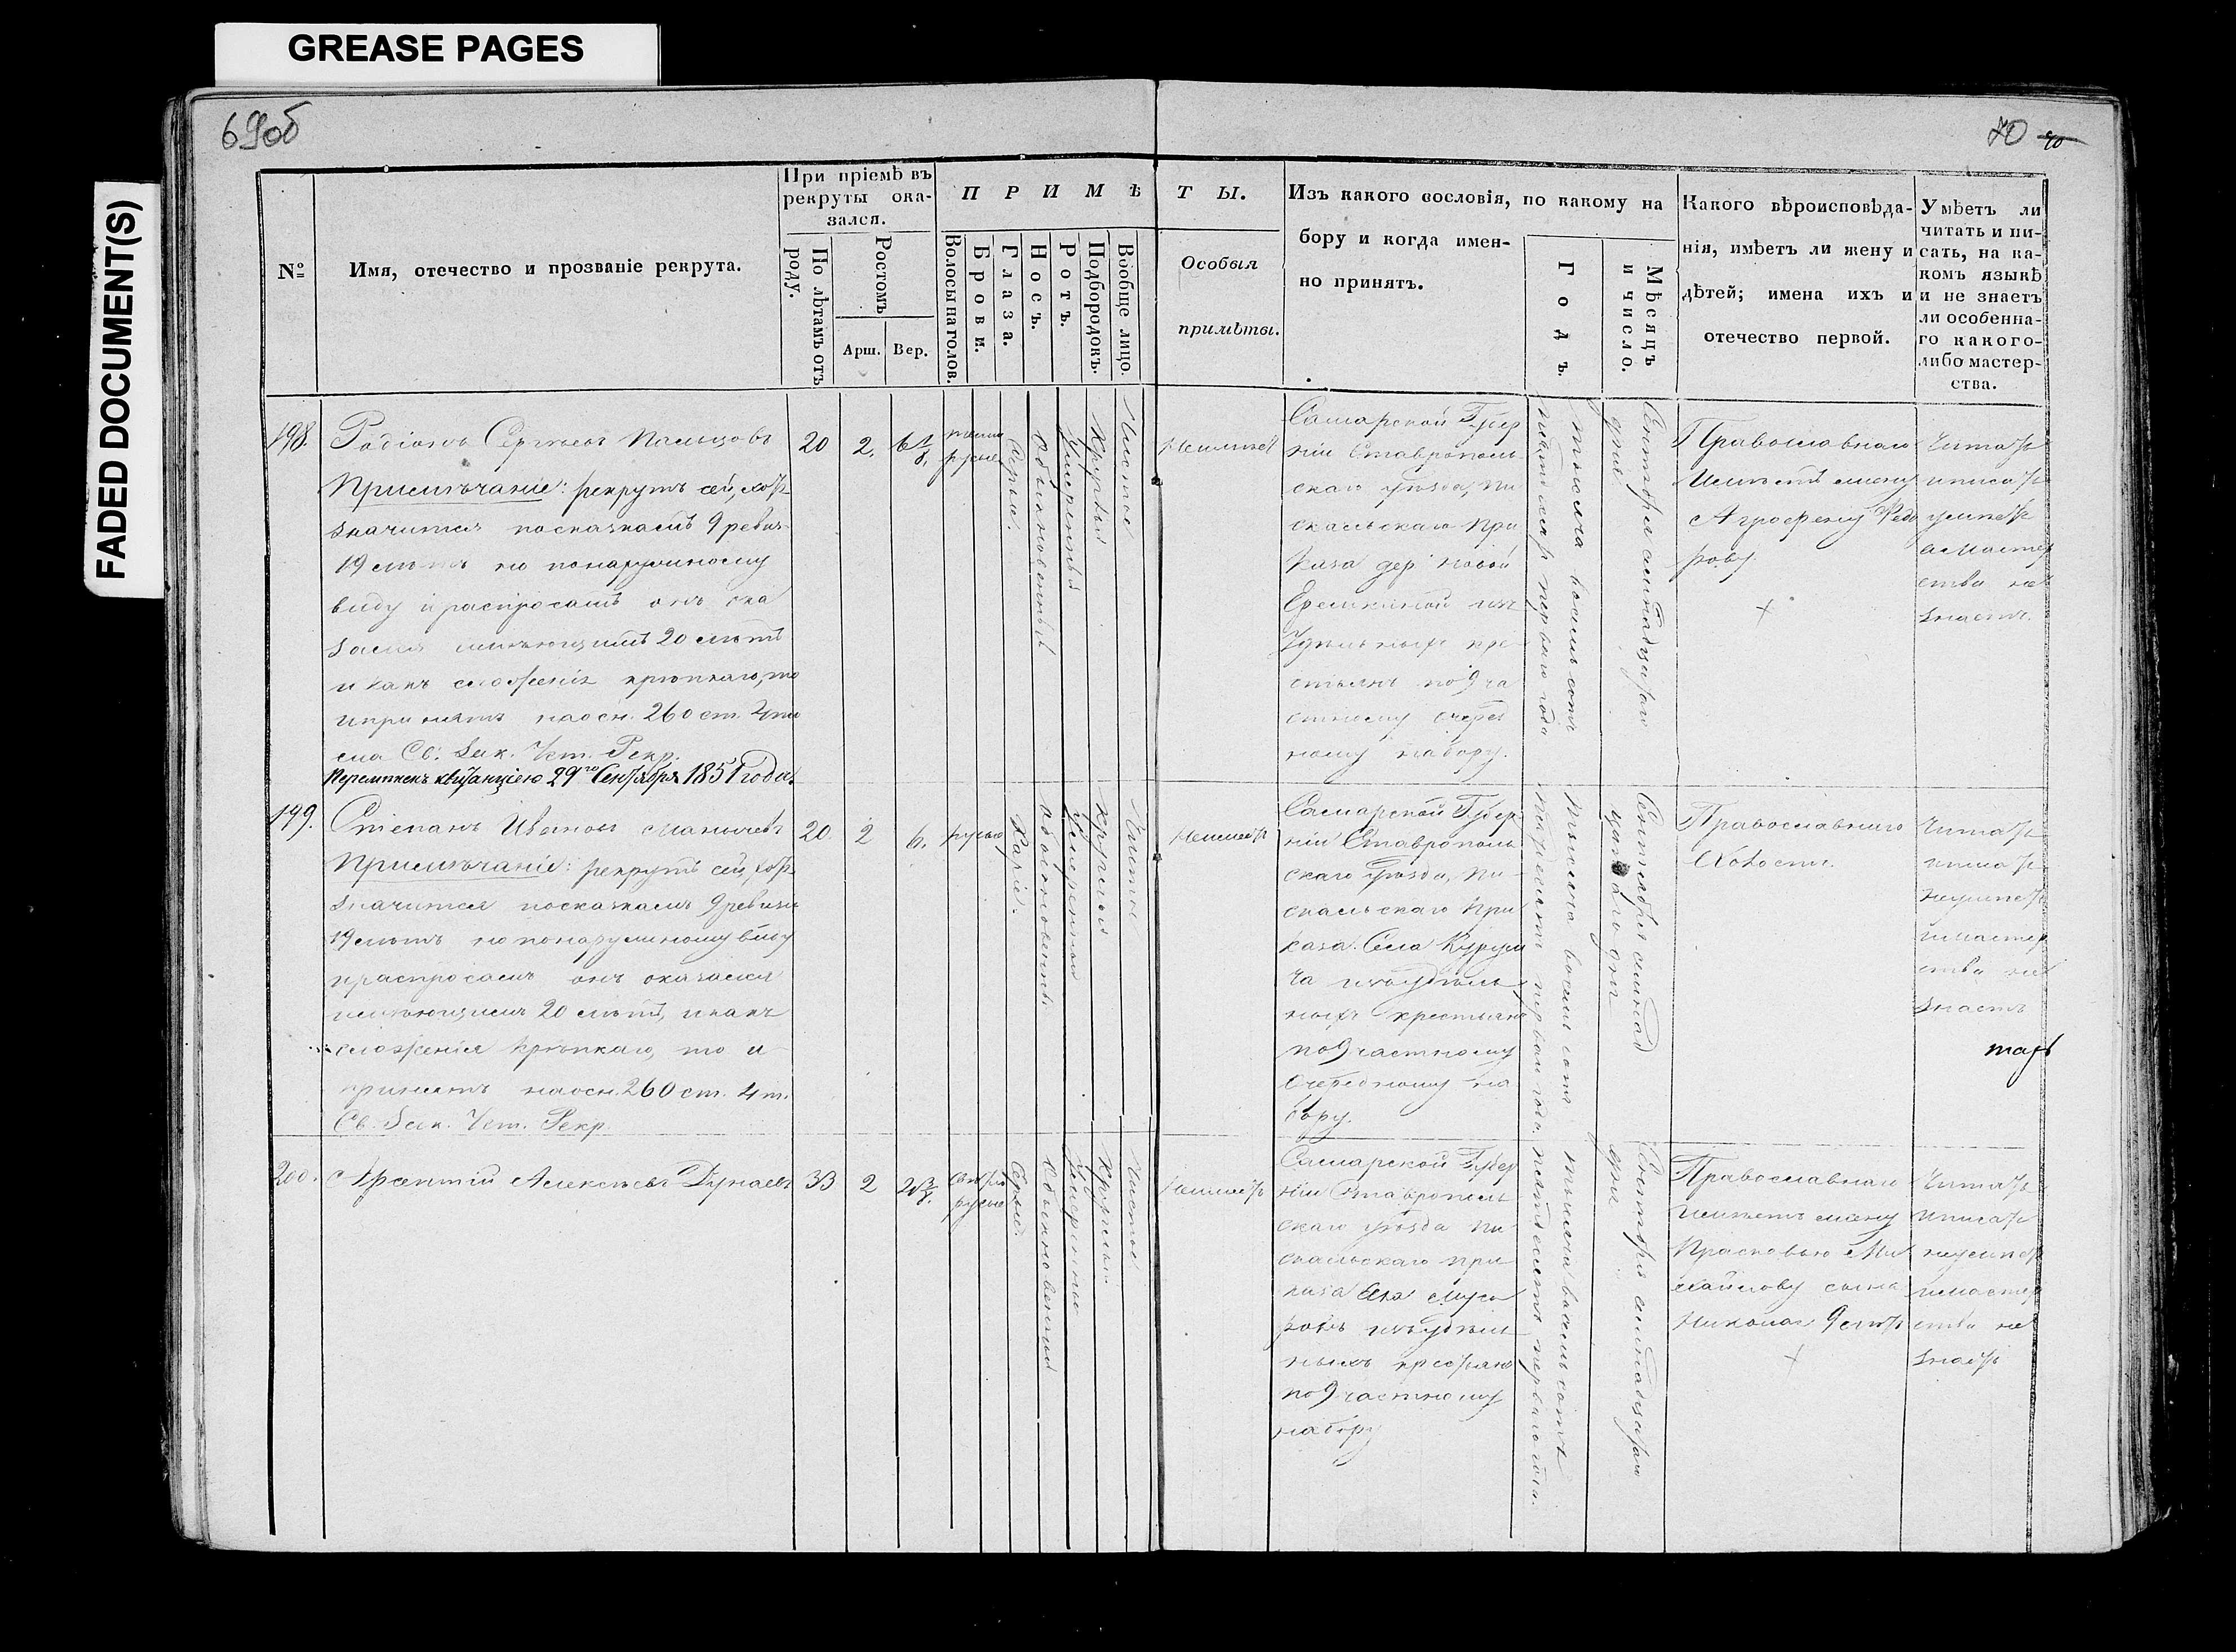 GREASE PAGES
FADED DOCUMENT(S)
69об
70
№
Имя, отечество и прозваніе рекрута.
При пріемѣ въ
рекруты ока-
зался.
По лѣтамъ отъ
роду.
Ростомъ
Арш.
Вер.
ПРИМѢТЫ.
Волосы на голов.
Брови.
Глаза.
Носъ.
Ротъ.
Подбородокъ.
Вообще лицо.
Особыя
примѣты.
Изъ какого сословія, по какому на
бору и когда имен-
но принятъ.
Годъ.
Мѣсяцъ
и число.
Какого вѣроисповѣда-
нія, имѣетъ ли жену и
дѣтей; имена ихъ и
отечество первой.
Умѣетъ ли
читать и пи-
сать, на ка-
комъ языкѣ
и не знаетъ
ли особенна-
го какого-
либо мастер-
ства.
198.
Родіонъ Сергѣевъ
Примѣчаніе: рекрутъ сей, хотя
значится по сказкамъ 9 ревиз.
19 лѣтъ но по наружному
виду и распросамъ онъ ока
зался имѣющимъ 20 лѣтъ
и какъ сложенія крѣпкаго, то
и принятъ на осн. 260 ст. 4 то
ма Св. Зак. Уст. Рекр.
квитанціею 29го Сентября 1851 года.
20
2.
темно
русые
Сѣрые.
Обыкновенный
Умеренный
Круглый
Чистое
Неимѣетъ
Самарской Губер
ніи Ставрополь
скаго уѣзда, Пи
скальскаго При
каза дер. Новой
Еремкиной изъ
Удѣльныхъ кре
стьянъ по 9 ча
стному очеред
ному набору.
тысяча восемьсотъ
пятьдесятъ перваго года
Сентября семнадцатаго
дня
Православнаго
Имѣетъ жену
Агрофену Федо
рову
Читать
и писать
умѣетъ
а мастер
ства не
знаетъ.
199.
Степанъ Ивановъ
Примѣчаніе: рекрутъ сей, хотя
значится по сказкамъ 9 ревизіи
19 лѣтъ но по наружному виду
и распросамъ онъ оказался
имѣющимъ 20 лѣтъ, и какъ
сложенія крѣпкаго, то и
принятъ на осн. 260 ст. 4 т.
Св. Зак. Уст. Рекр.
20.
2
6.
русые
Каріе.
Обыкновенный
Умеренный
Круглый
Чистое
Неимѣетъ
Самарской Губер
ніи Ставрополь
скаго уѣзда, Пи
скальскаго При
каза. Села Курумо
ча изъ удѣль
ныхъ крестьянъ
по 9 частному
очередному на
бору.
тысяча восемьсотъ
пятьдесятъ перваго года.
Сентября семнад
цатаго дня
Православнаго
Холостъ.
Читать
и писать
неумѣетъ
и мастер
ства не
знаетъ
200.
Алексѣевъ Дунаевъ
33
2
свѣтло
русые
Сѣрые.
Обыкновенный
Умеренный
Круглый
Чистое
Неимѣетъ
Самарской Губер
ніи Ставрополь
скаго уѣзда Пи
скальскаго При
каза
изъ удѣль
ныхъ крестьянъ
по 9 частному
набору
тысяча восемьсотъ
пятьдесятъ перваго года.
Сентября семнадцатаго
дня
Православнаго
Имѣетъ жену
Прасковью Ми
хайлову сына
Николая 9 лѣтъ
Читать
и писать
неумѣетъ
и мастер
ства не
знаетъ